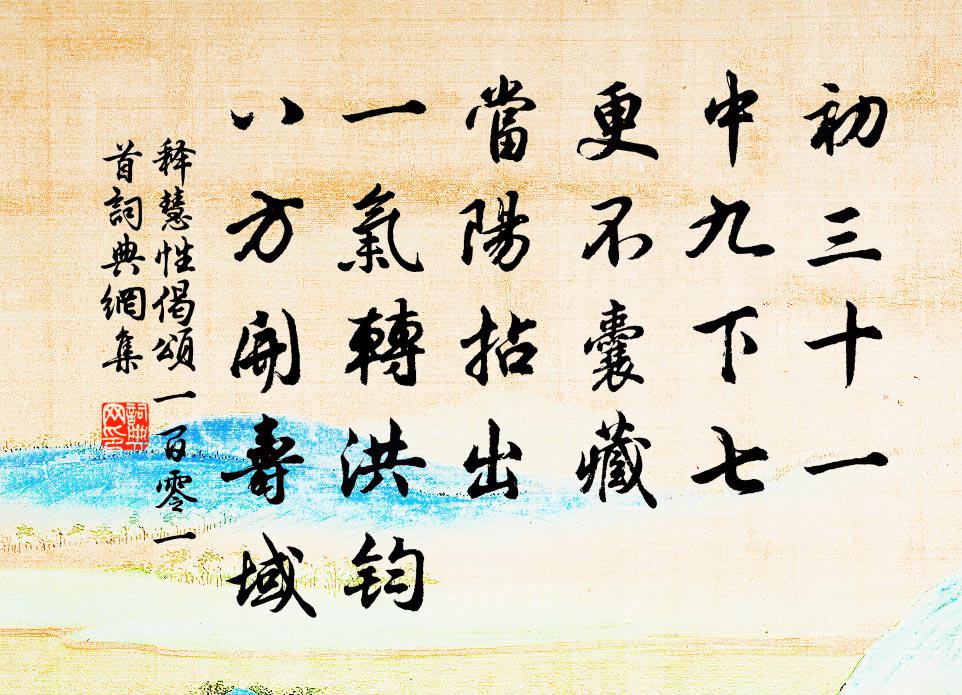 初三十一
中九下七
更不囊藏
當陽拈出
一氣轉洪鈞
八方開壽域
释慧性偈頌一百零一
首詞典網集
詞典网印